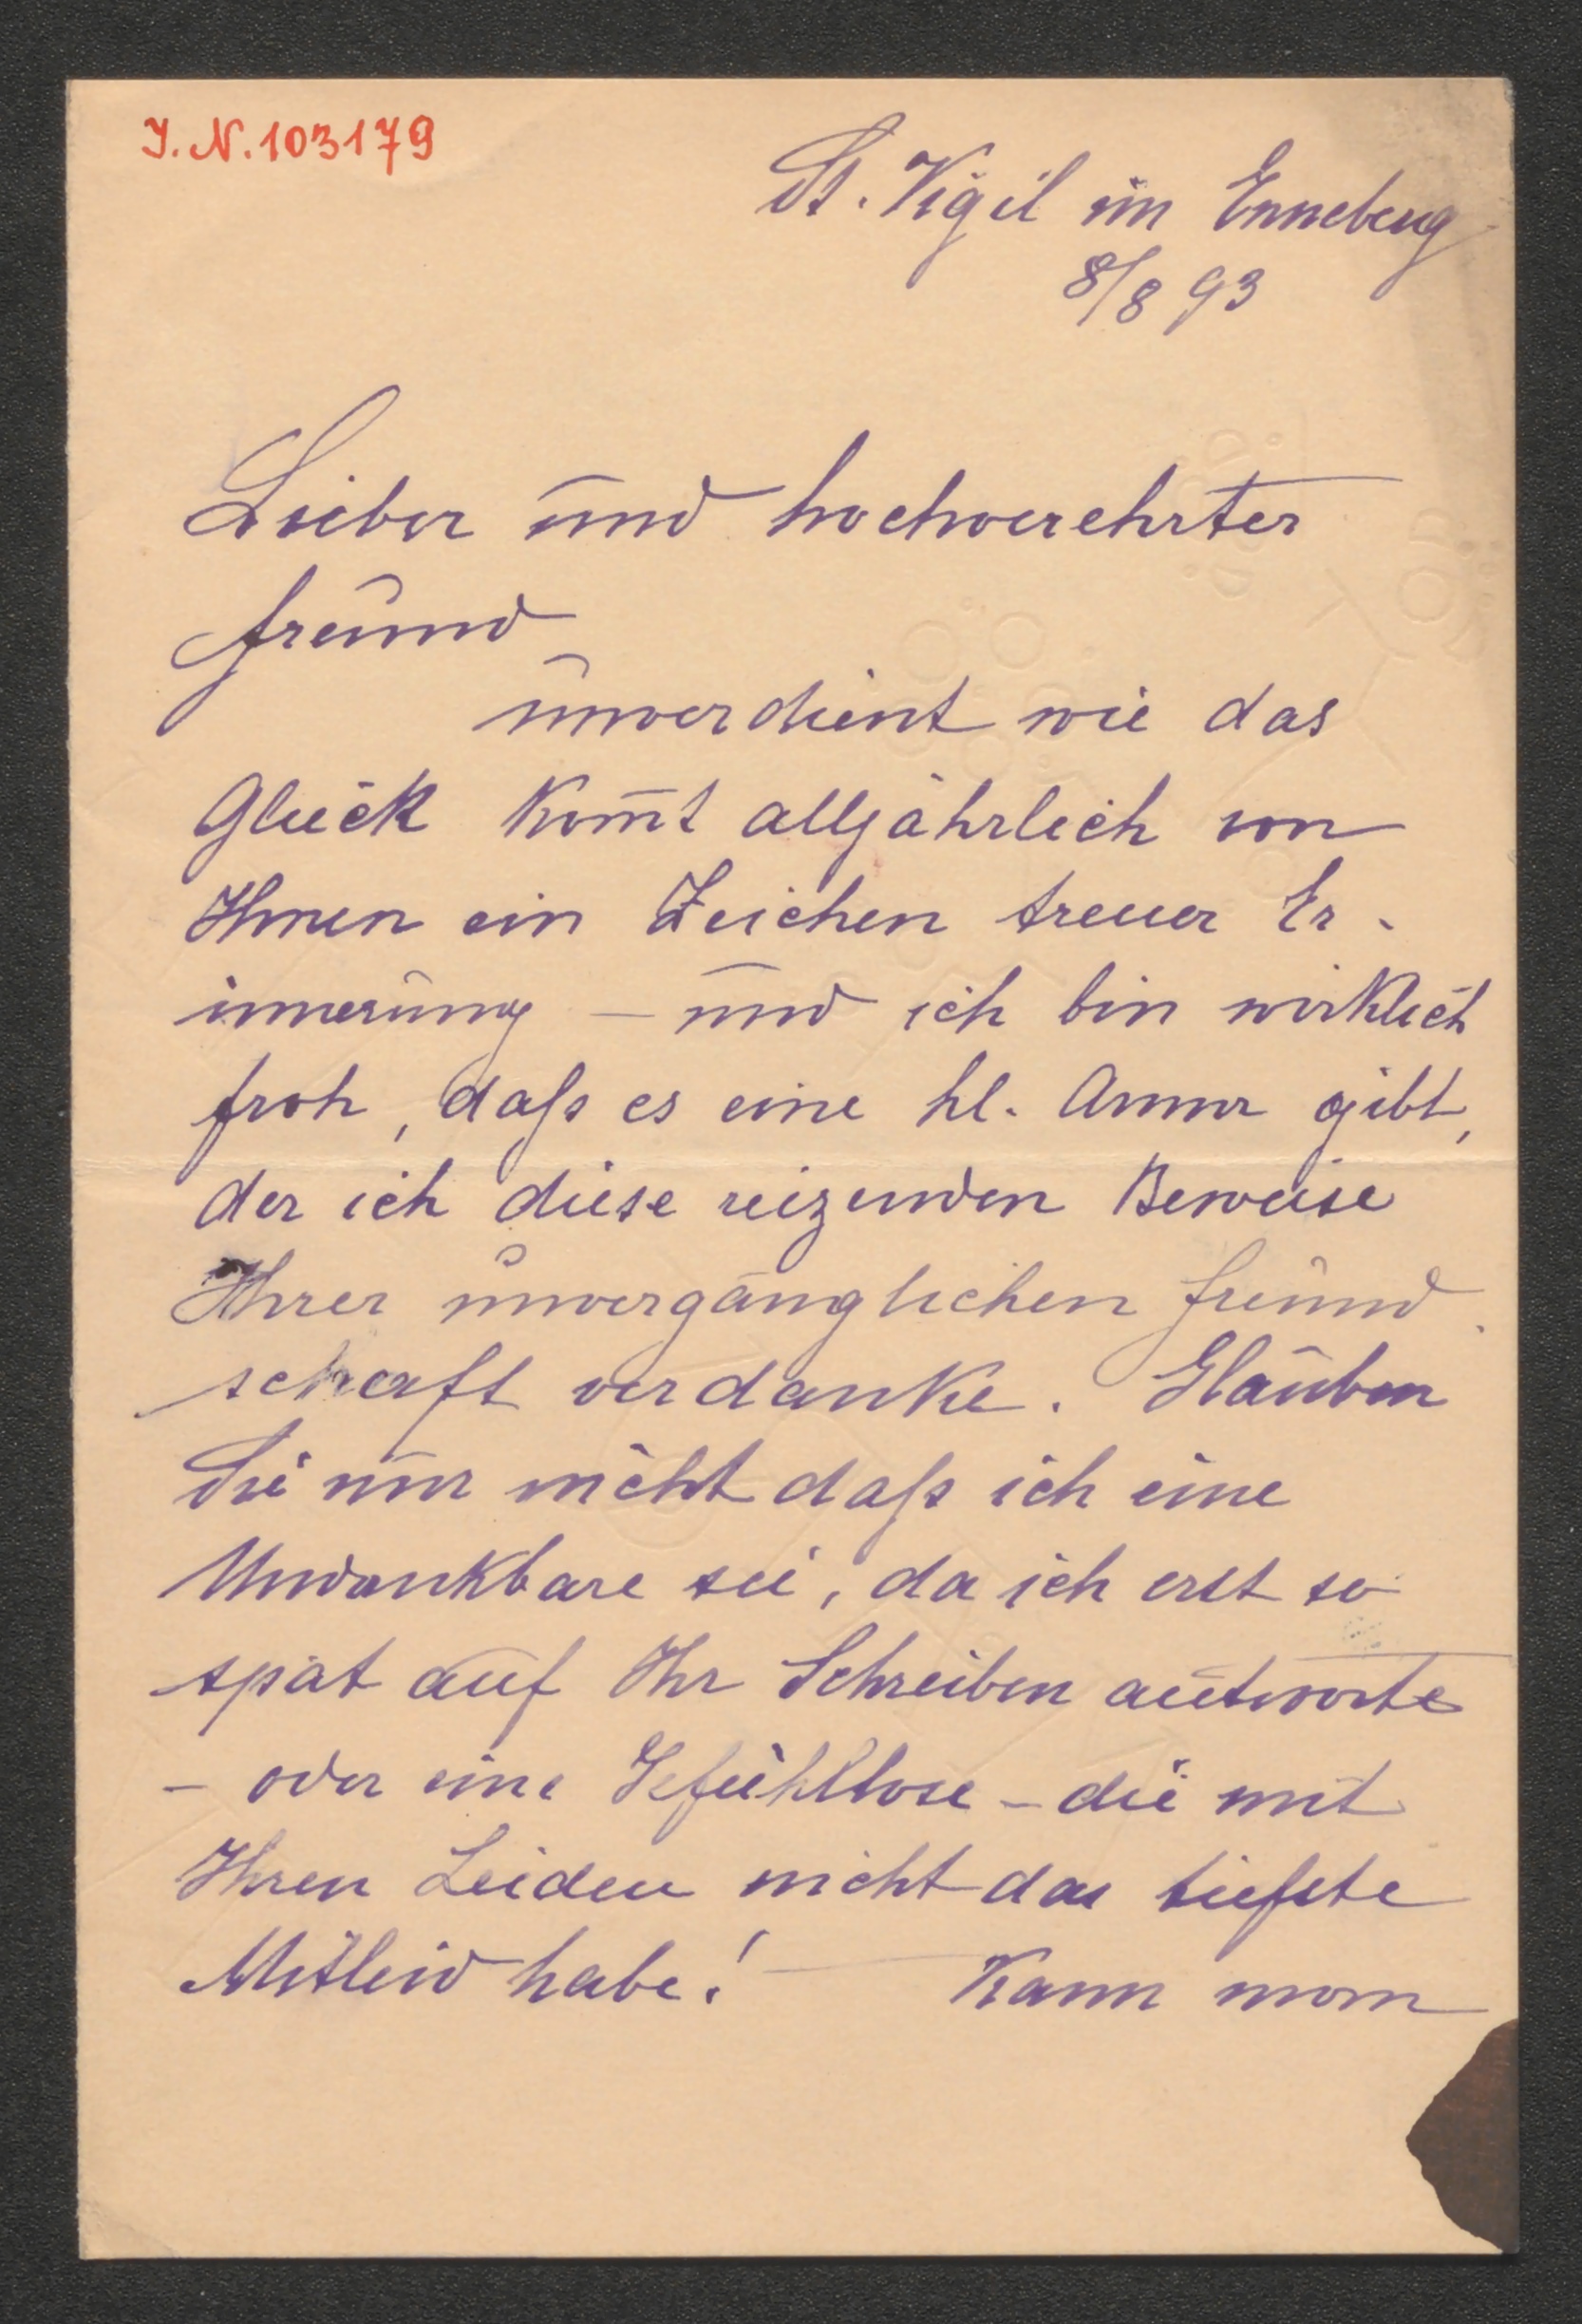 J. N. 103179
St. Vigil im Enneberg
8/8 93
Lieber und hochverehrter
Freund
unverdient wie das
Glück kom̄t alljährlich von
Ihnen ein Zeichen treuer Er-
innerung – und ich bin wirklich
froh, daſs es eine hl. Anna gibt,
der ich diese reizenden Beweise
Ihrer unvergänglichen Freund-
schaft verdanke. Glauben
Sie nur nicht daſs ich eine
Undankbare sei, da ich erst so
spät auf Ihr Schreiben antworte
– oder eine Gefühllose – die mit
Ihren Leiden nicht das tiefste
Mitleid habe! – Kann man